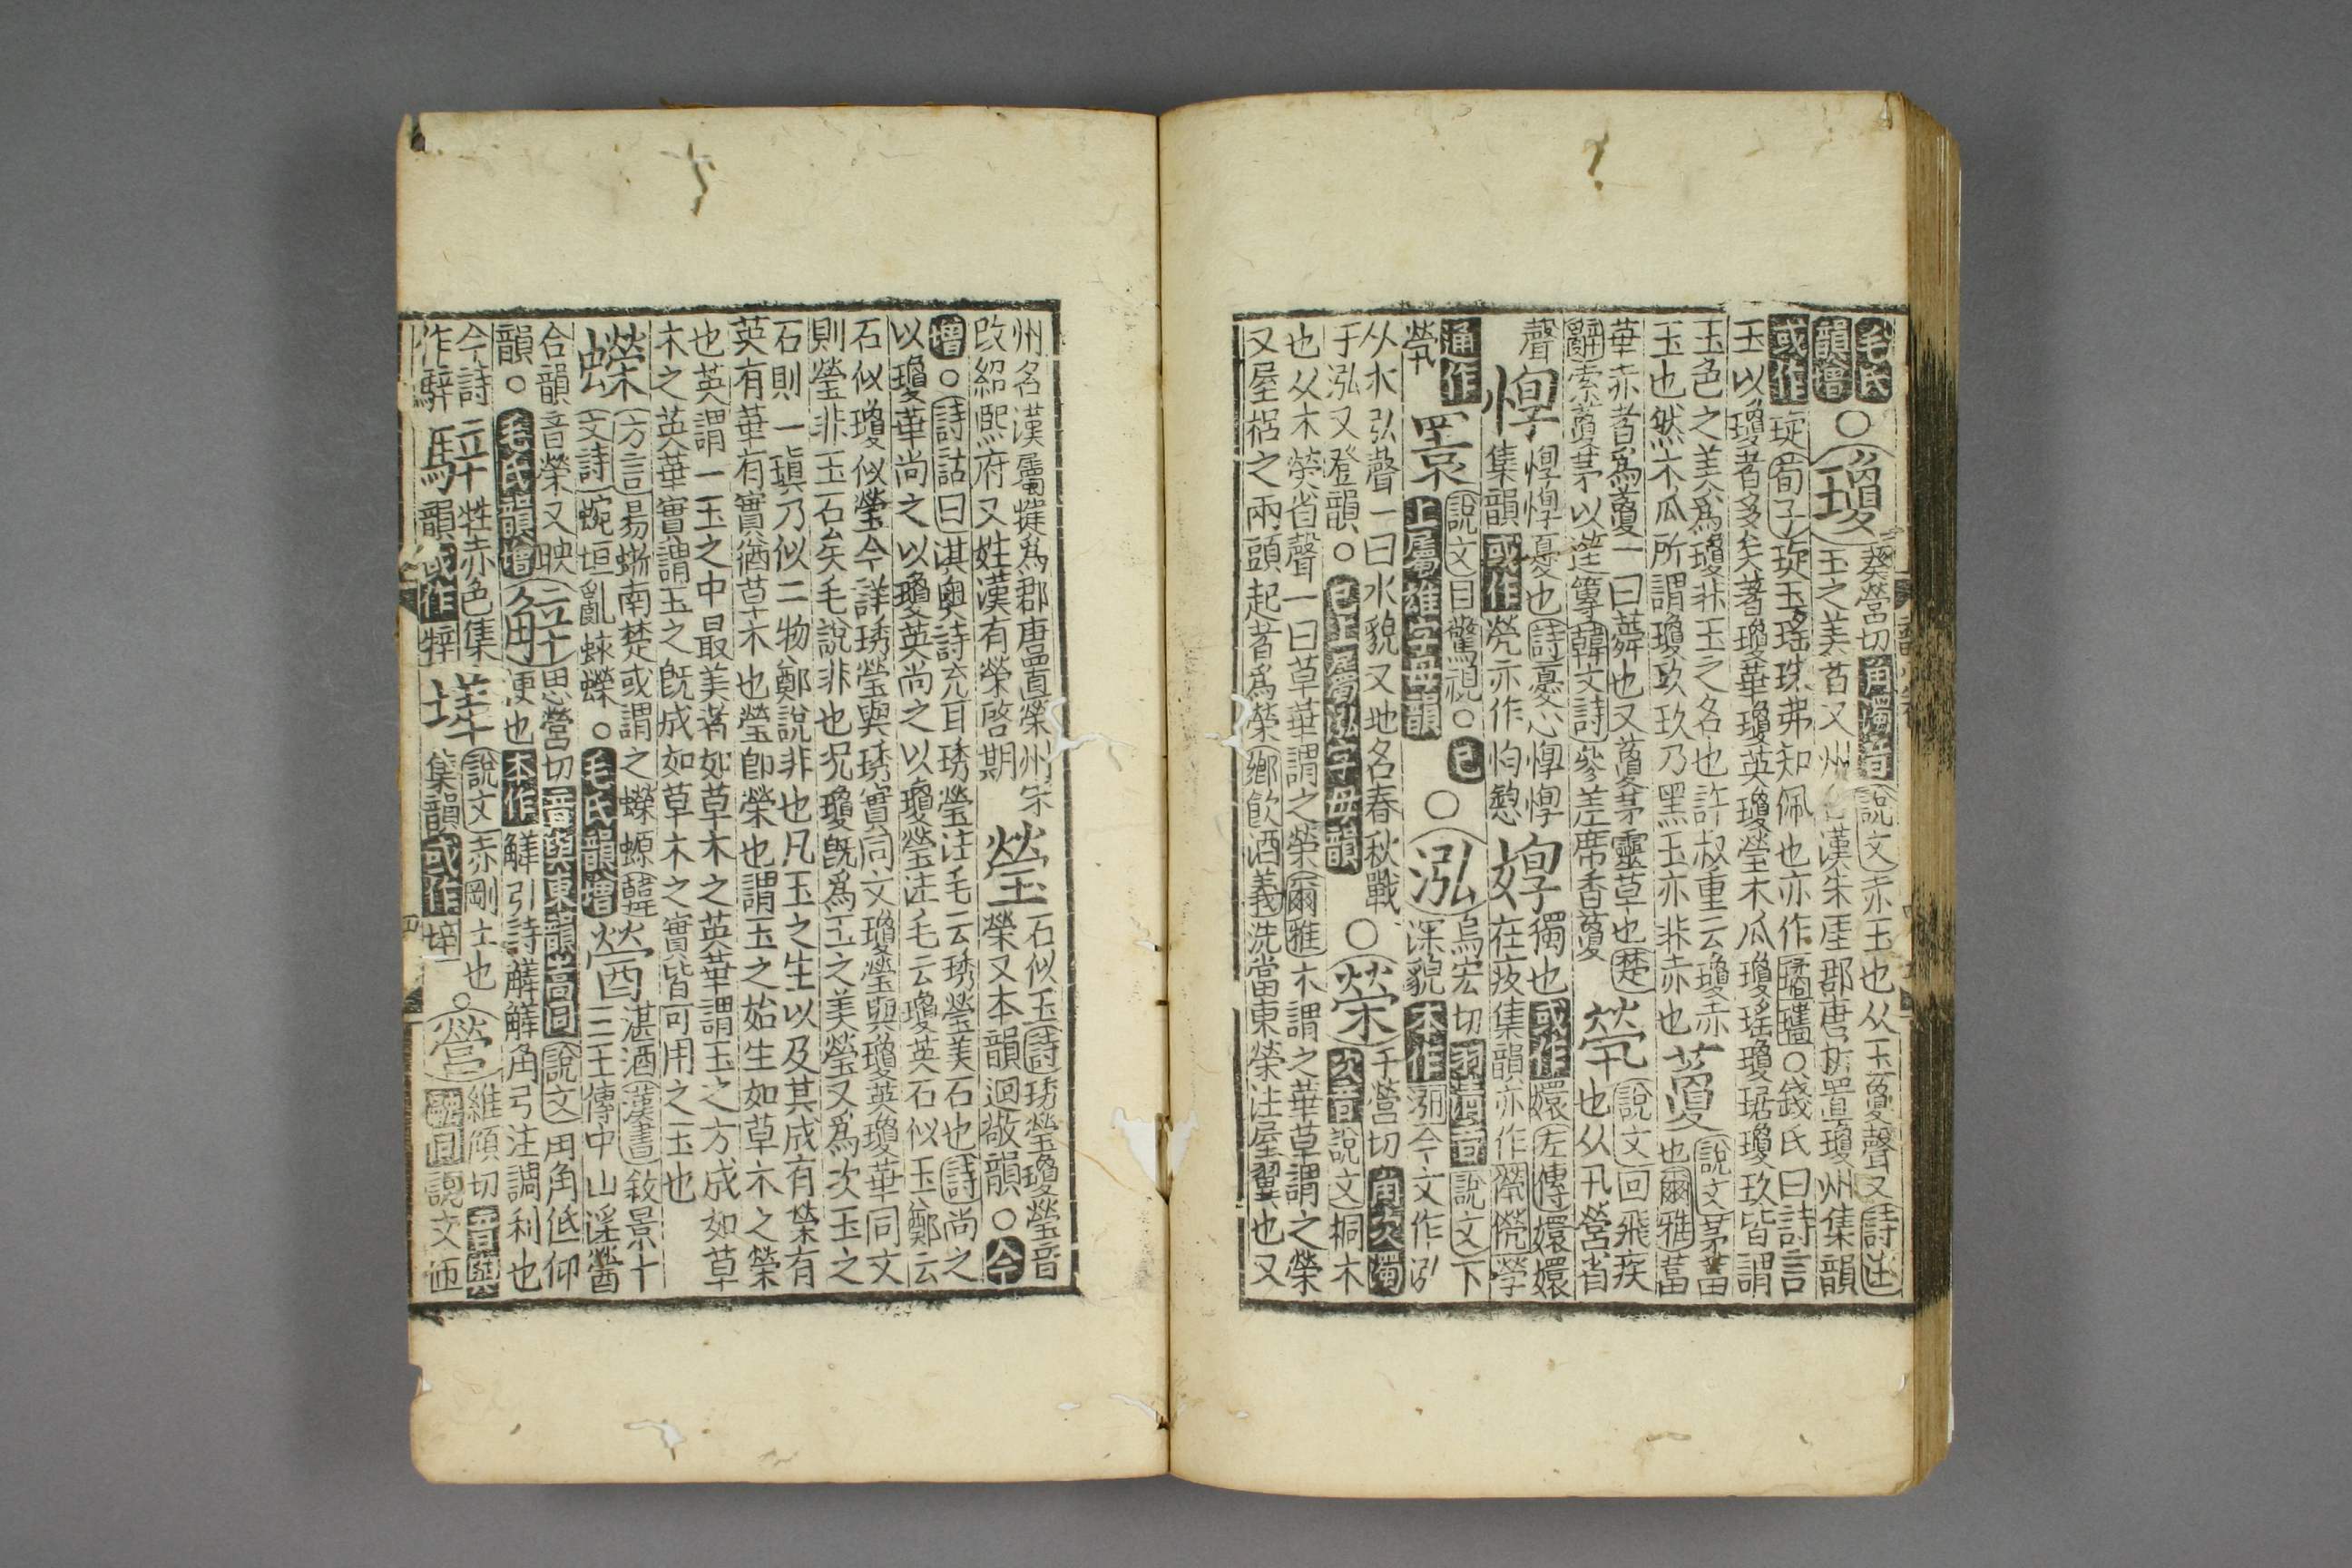 毛氏
韻增
○瓊
葵營切角濁音說文赤玉也从玉夐聲又詩注
玉之美者又州名漢朱厓郡唐析置瓊州集韻
或作琁荀子琁玉瑤珠弗知佩也亦作璚瓗○錢氏曰詩言
玉以瓊者多矣著瓊華瓊英瓊瑩木瓜瓊瑤瓊琚瓊玖皆謂
玉色之美為瓊非玉之名也許叔重云瓊赤
玉也然木瓜所謂瓊玖玖乃黑玉亦非赤也
藑
說文茅葍
也爾雅葍
華赤者爲藑一曰蕣也又藑茅靈草也楚
辭索藑茅以筳篿韓文詩參差席香藑
煢
說文回飛疾
也从卂營省
聲
惸
惸惸憂也詩憂心惸惸
集韻或作㷀亦作恂㥪
㛦
獨也或作嬛左傳嬛嬛
在疚集韻亦作
通作
煢
睘
說文目驚視○已
上屬雄字母韻
○泓
烏宏切羽清音說文下
深貌本作今文作泓
从水弘聲一曰水貌又地名春秋戰
于泓又登韻○已上屬泓字母韻
○榮
于營切角次濁
次音說文桐木
也从木熒省聲一曰草華謂之榮爾雅木謂之華草謂之榮
又屋梠之兩頭起者爲榮鄉飲酒義洗當東榮注屋翼也又
州名漢屬犍爲郡唐置榮州宋
改紹熙府又姓漢有榮啓期
瑩
石似玉詩琇瑩瓊瑩音
榮又本韻迥敬韻○今
增○詩詁曰淇奧詩充耳琇瑩注毛云琇瑩美石也詩尚之
以瓊華尚之以瓊英尚之以瓊瑩注毛云瓊英石似玉鄭云
石似瓊似瑩今詳琇瑩與琇實同文瓊瑩與瓊英瓊華同文
則瑩非玉石矣毛說非也况瓊旣爲玉之美瑩又爲次玉之
石則一瑱乃似二物鄭說非也凡玉之生以及其成有榮有
英有華有實猶草木也瑩卽榮也謂玉之始生如草木之榮
也英謂一玉之中最美者如草木之英華謂玉之方成如草
木之英華實謂玉之旣成如草木之實皆可用之玉也
蠑
方言昜蜥南楚或謂之蠑螈韓
文詩蜿垣亂蛷蠑○毛氏韻增
醟
湛酒漢書敘景十
三王傳中山淫醟
合韻音榮又映
韻○毛氏韻增
觲
思營切音與東韻嵩同說文用角低仰
便也本作觲引詩觲觲角弓注調利也
今詩
作騂
騂
牲赤色集
韻或作㹵
垶
說文赤剛土也
集韻或作埲
○營
維傾切音與
融同說文帀